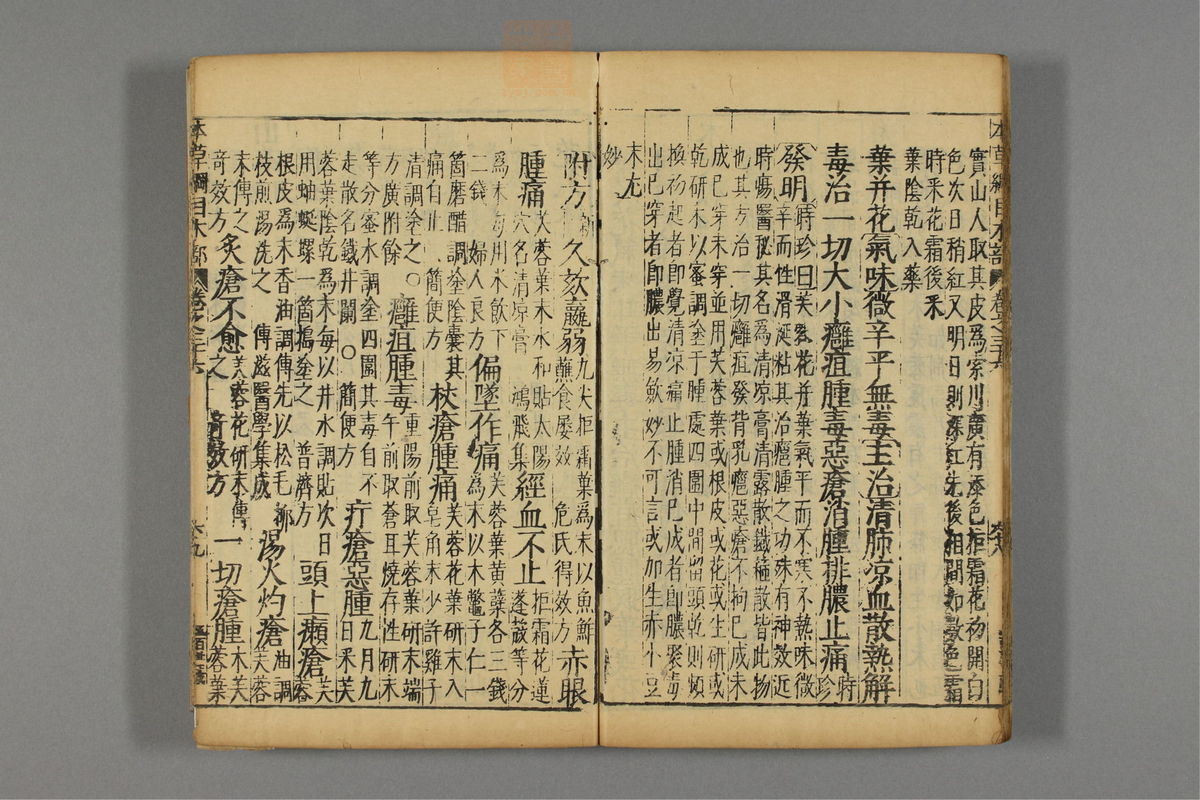 實山人取其皮爲索川廣有添色拒霜花初開白
色次日稍紅又明日則深紅先後相間如數色
時采花霜後采
葉陰乾入藥
葉并花氣味微辛平無毒主治清肺凉血散熱解
毒治一切大小癰疽腫毒惡瘡消腫排膿止痛時珍
發明時珍曰芙蓉花并葉氣平而不寒不熱味微
辛而性滑涎粘其治癰腫之功殊有神效近
時瘍醫秘其名爲清凉膏清露散鐵箍散皆此物
也其方治一切癰疽發背乳癰惡瘡不拘已成未
成已穿未穿並用芙蓉葉或根皮或花或生研或
乾研末以蜜調塗于腫處四圍中間留頭乾則頻
換初起者即覺清凉痛止腫消已成者即膿聚毒
出已穿者即膿出易斂妙不可言或加生赤小豆
末尤
妙
附方新久欬羸弱九尖拒霜葉爲末以魚鮓
蘸食屢效 危氏得效方赤眼
腫痛芙蓉葉末水和貼太陽
穴名清凉膏 鴻飛集經血不止拒霜花蓮
蓬殼等分
爲末每用米飲下
二錢 婦人良方偏墜作痛芙蓉葉黃蘗各三錢
爲末以木鼈子仁一
箇磨醋調塗陰囊其
痛自止 簡便方杖瘡腫痛芙蓉花葉研末入
皂角末少許雞子
清調塗之○
方廣附餘癰疽腫毒重陽前取芙蓉葉研末端
午前取蒼耳燒存性研末
等分蜜水調塗四圍其毒自不
走散名鐵井闌 ○簡便方疔瘡惡腫九月九
日采芙
蓉葉陰乾爲末每以井水調貼次日
用蚰蜒螺一箇搗塗之 普濟方頭上癩瘡芙蓉
根皮爲末香油調傅先以松毛柳
枝煎湯洗之 傅滋醫學集成湯火灼瘡油調芙蓉
末傅之
奇效方灸瘡不愈芙蓉花研末傅
之 奇效方一切瘡腫木芙
蓉葉